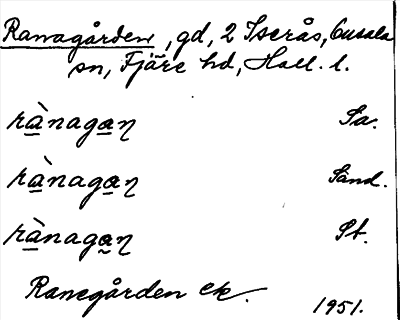 Ranagården, gd, 2 Iserås, Ousala
sn, Fjäre hd, Hall. l.
rànagaɳ Sa.
rànagaɳ Sänd.
rànagaɳ St.
Ranegården ek.
1951.